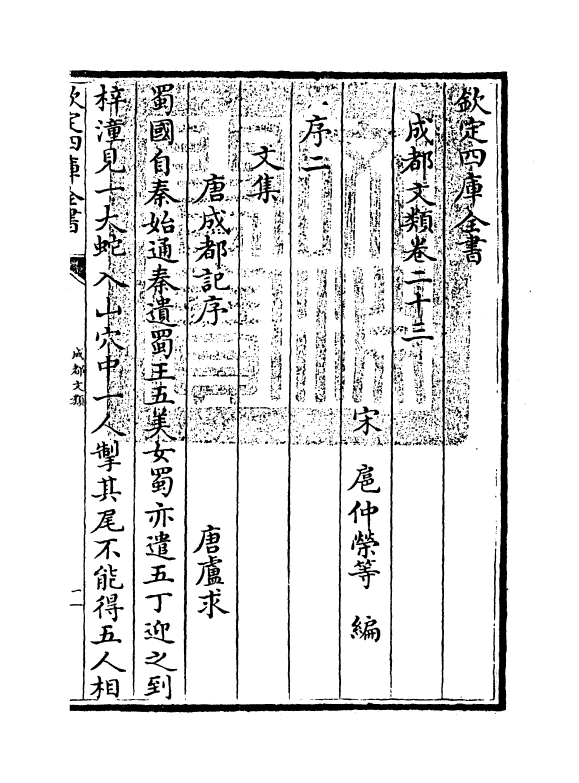 欽定四庫全書
成都文類卷二十三
宋 扈仲榮等 編
序二
文集
唐成都記序 唐盧求
蜀國自秦始通秦遺蜀王五美女蜀亦遣五丁迎之到
梓潼見一大蛇入山穴中一人掣其尾不能得五人相
欽定四庫全書
成都文類